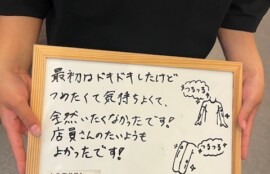 最初はドキドキしたけど
つめたくて気持ちよくて、
全然いたくなかったです!
店員さんのたいようも
よかったです!
つるつる
つるつる